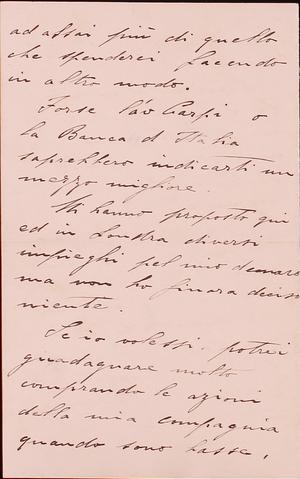 ad assai più di quello
che spenderei facendo
in altro modo.
Forse l'av Carpi o
la Banca d Italia
saprebbero indicarti un
mezzo migliore.
Mi hanno proposto qui
ed in Londra diversi
impieghi pel mio denaro
ma non ho finora deciso
niente.
Se io volessi, potrei
guadagnare molto
comprando le azioni
della mia compagnia
quando sono basse,